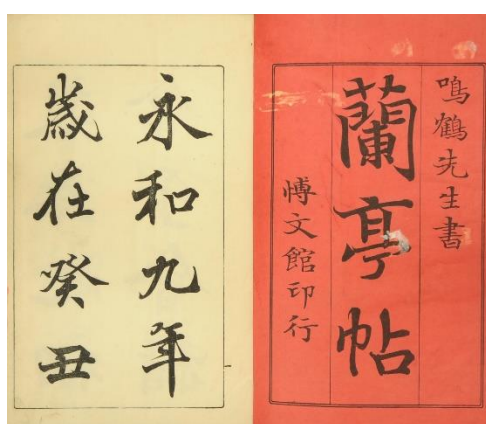 鳴鶴先生書
蘭亭帖
愽文館印行
永和九年
歳在癸丑